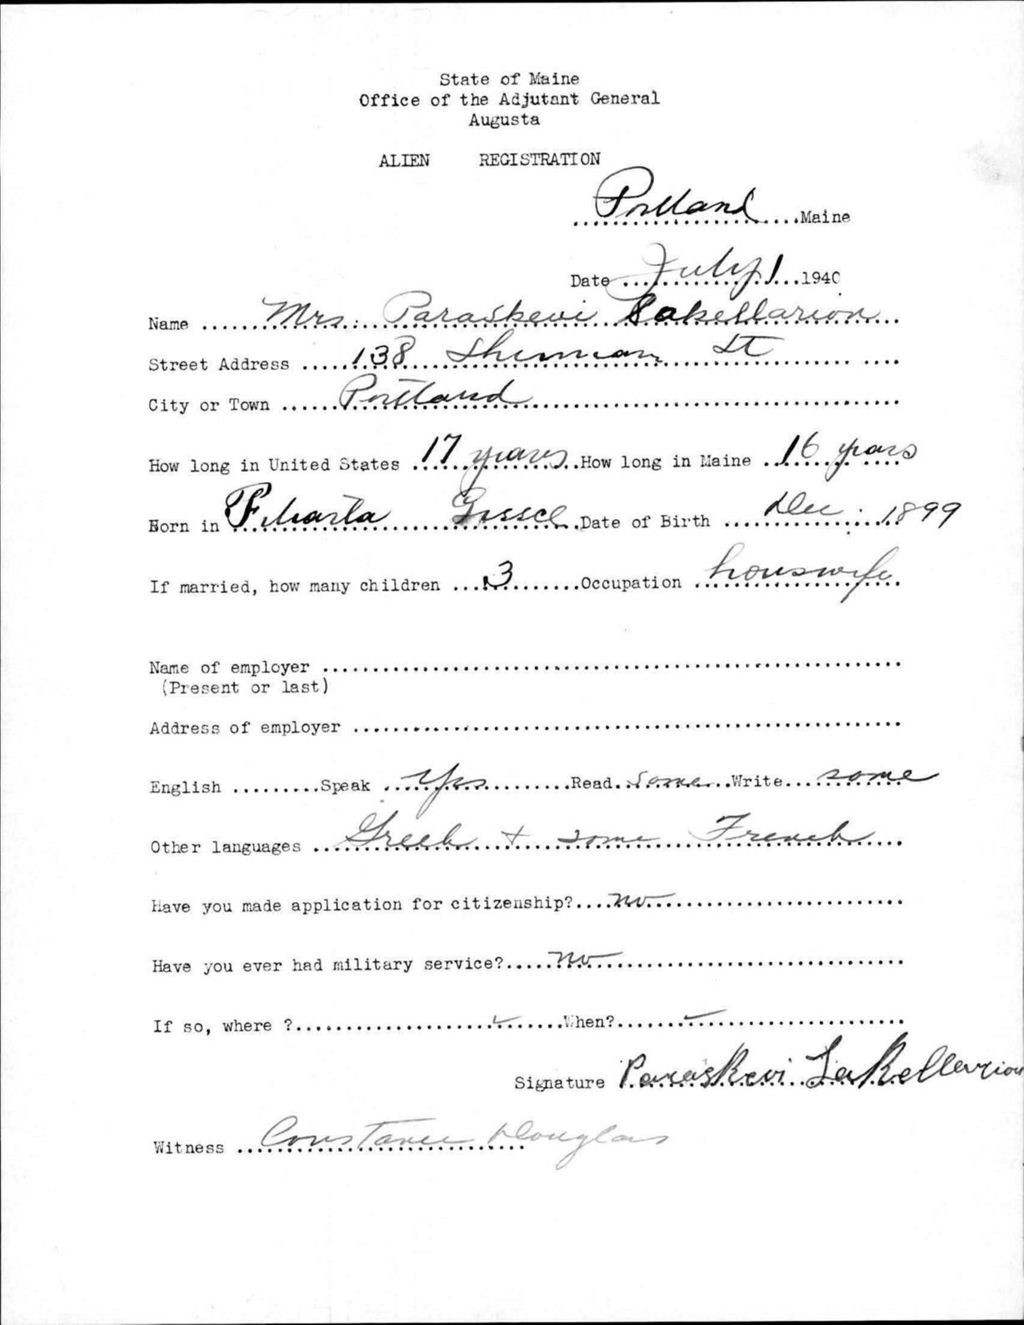 State of Maine
Office of the Adjutant General
Augusta
ALIEN REGISTRATION
Portland Maine
Date July 1 1940
Name Mrs. Paraskevi Sakellarion
Street Address 138 Sherman St
City or Town Portland
How long in United States 17 years How long in Maine 16 years
Born in Date of Birth Dec. 1899
If married, how many children 3 Occupation houswife
Name of employer
(Present or last)
Address of employer
English Speak Yes Read some Write some
Other languages Greek + some French
Have you made application for citizenship? no
Have you ever had military service? no
If so, where ? When?
Signature Paraskevi Sakellarion
Witness Constance Douglas